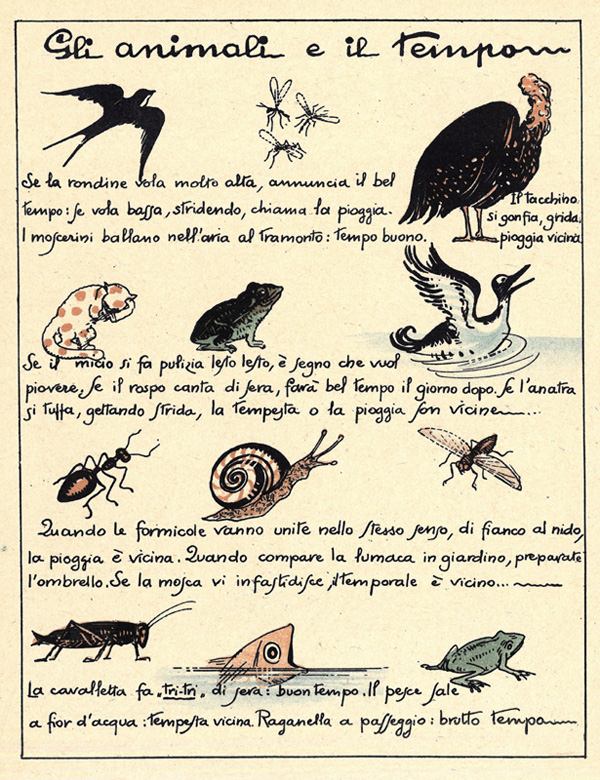 Gli animali e il tempo
Se la rondine vola molto alta, annuncia il bel
tempo: se vola bassa, stridendo, chiama la pioggia.
I moscerini ballano nell'aria al tramonto: tempo buono.
Il tacchino
si gonfia, grida.
pioggia vicina
Se il micio si fa pulizia lesto lesto, è segno che vuol
piovere. Se il rospo canta di sera, farà bel tempo il giorno dopo. Se l'anatra
si tuffa, gettando strida, la tempesta o la pioggia son vicine...
Quando le formicole vanno unite nello stesso senso, di fianco al nido,
la pioggia è vicina. Quando compare la lumaca in giardino, preparate
l'ombrello. Se la mosca vi infastidisce, il temporale è vicino...
La cavalletta fa "tri-tri" di sera: buon tempo. Il pesce sale
a fior d'acqua: tempesta vicina. Raganella a passeggio: brutto tempo